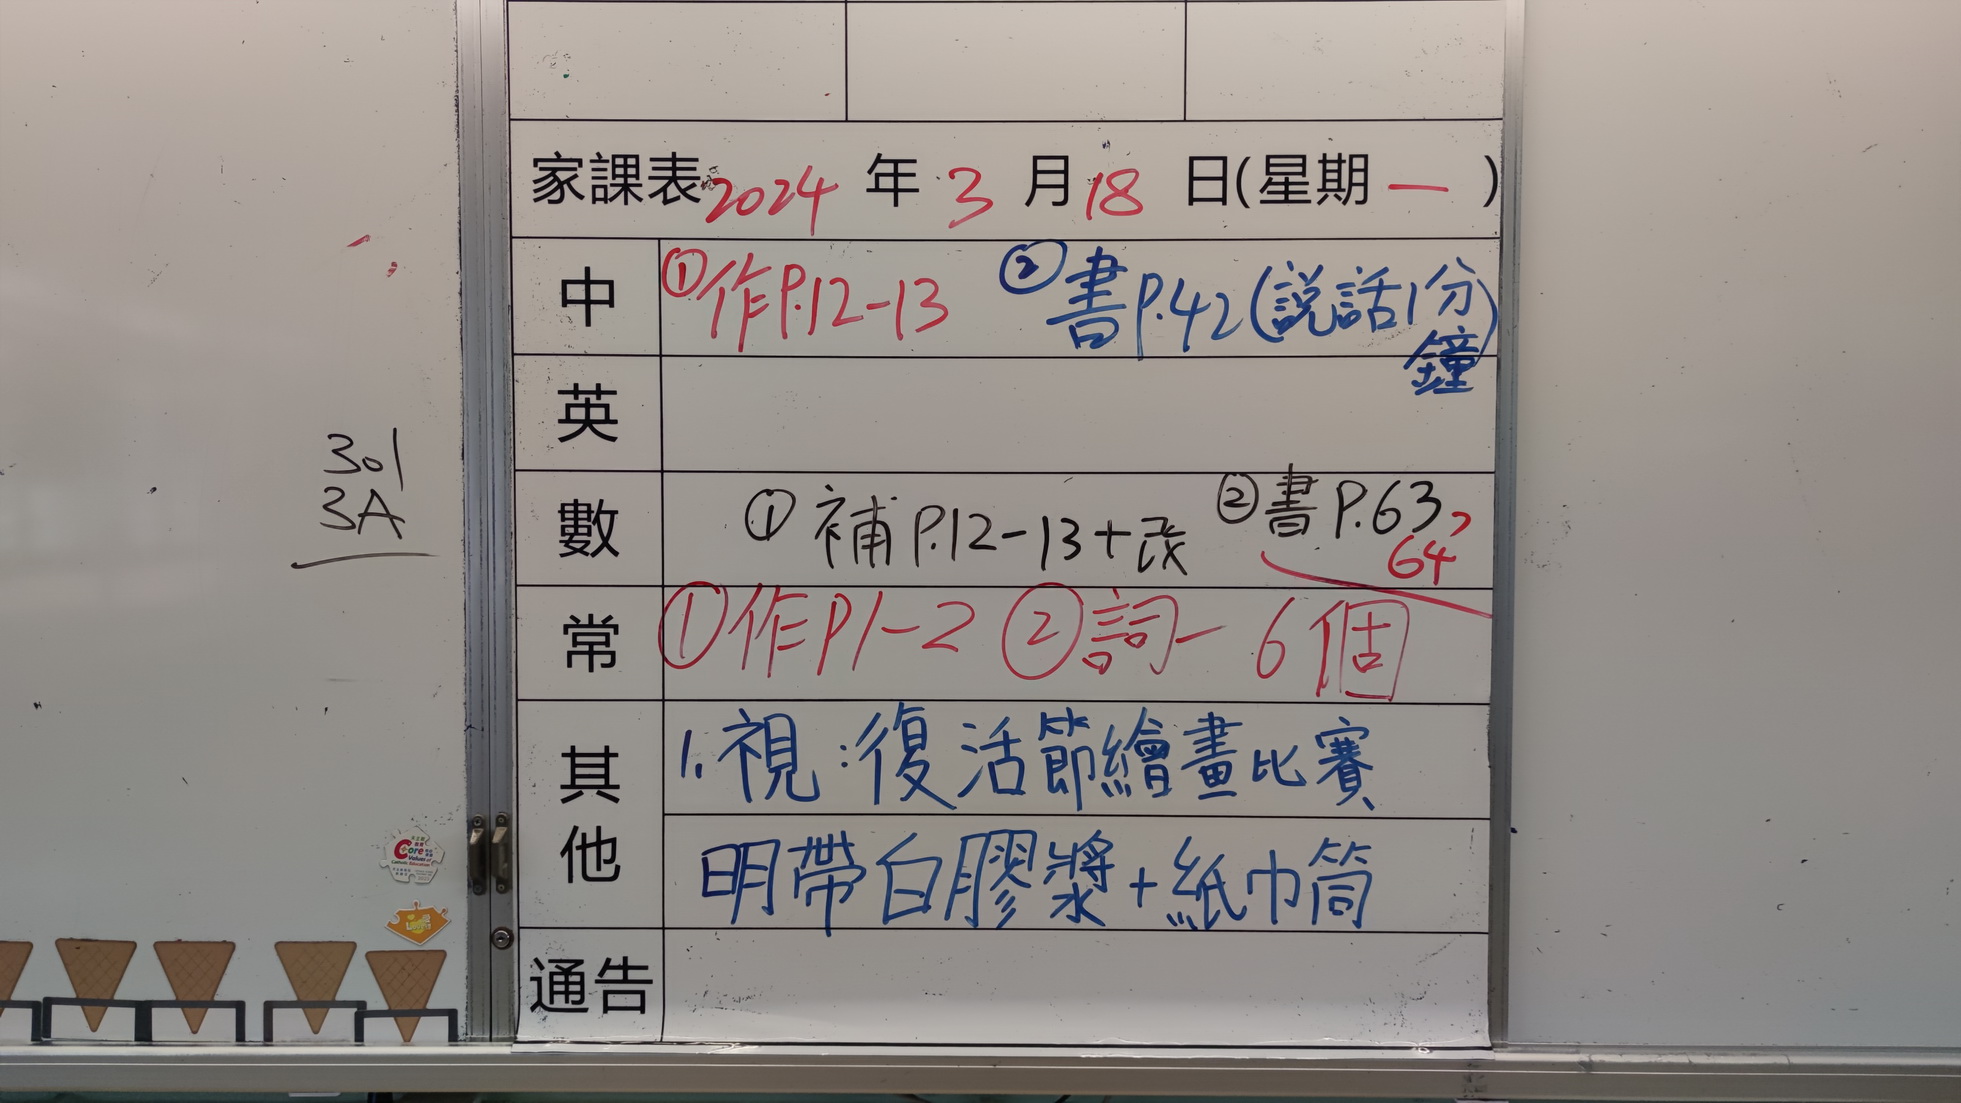 家課表 2024 年 3 月 18 日(星期 一 )
中 ①作P.12-13 ②書P.42(説話1分鐘)
英
數 ①補P.12-13+改 ②書P.63,64
常 ①作P1-2 ②詞一 6個
其他 1.視:復活節繪畫比賽
明帶白膠漿+紙巾筒
通告
301
3A
Core
Values of
Catholic Education